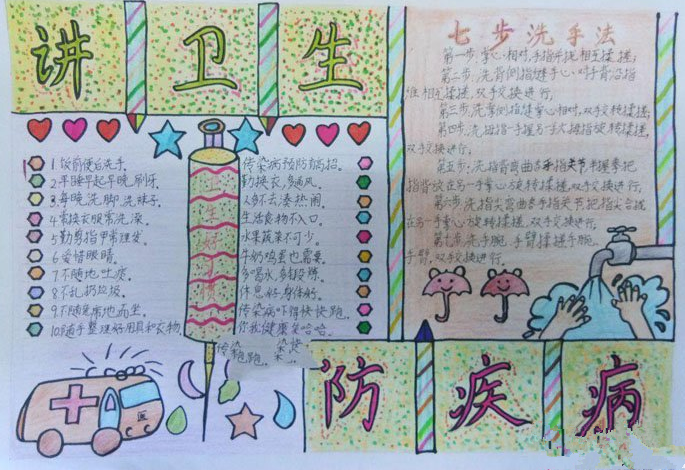 讲卫生
七步洗手法
第一步,掌心相对,手指并拢相互揉搓;
第二步,洗背侧指缝手心对手背沿指
缝相互揉搓,双手交换进行;
第三步,洗掌侧指缝掌心相对,双手交叉揉搓;
第四步,洗拇指一手握另一手大拇指旋转揉搓,
双手交换进行;
第五步,洗指背弯曲各手指关节半握拳把
指背放在另一手掌心旋转揉搓,双手交换进行;
第六步,洗指尖弯曲各手指关节把指尖合拢
在另一手掌心旋转揉搓,双手交换进行;
第七步,洗手腕、手臂揉搓手腕、
手臂,双手交换进行。
上生好习惯
1饭前便后洗手。
2早睡早起早晚刷牙。
3每晚洗脚、洗袜子。
4常换衣服常洗澡。
5勤剪指甲常理发。
6爱惜眼睛。
7不随地吐痰。
8不乱扔垃圾。
9不随意席地而坐。
10随手整理好用具和衣物。
传染病预防有高招。
勤换衣,多通风。
人多不去凑热闹。
生活食物不入口。
水果蔬菜不可少。
牛奶鸡蛋也需要。
多喝水,多锻炼。
休息好,身体好。
传染病吓得快快跑。
你我健康笑哈哈。
防疾病